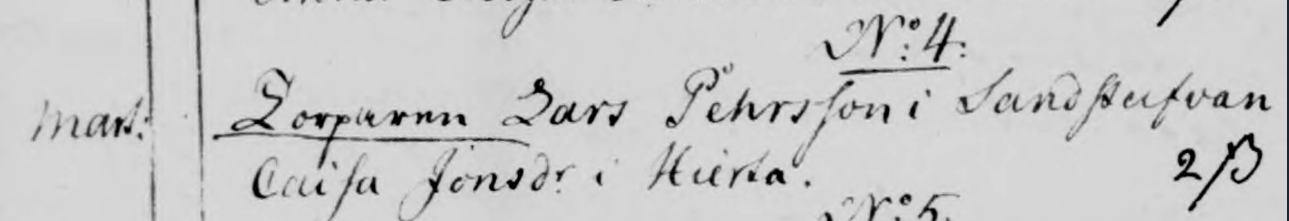 N:o 4:
Mart: Torparen Lars Pehrsson i Sandstufvan
Caisa Jonsdr i Hierta. 2 ß
N:o 5.